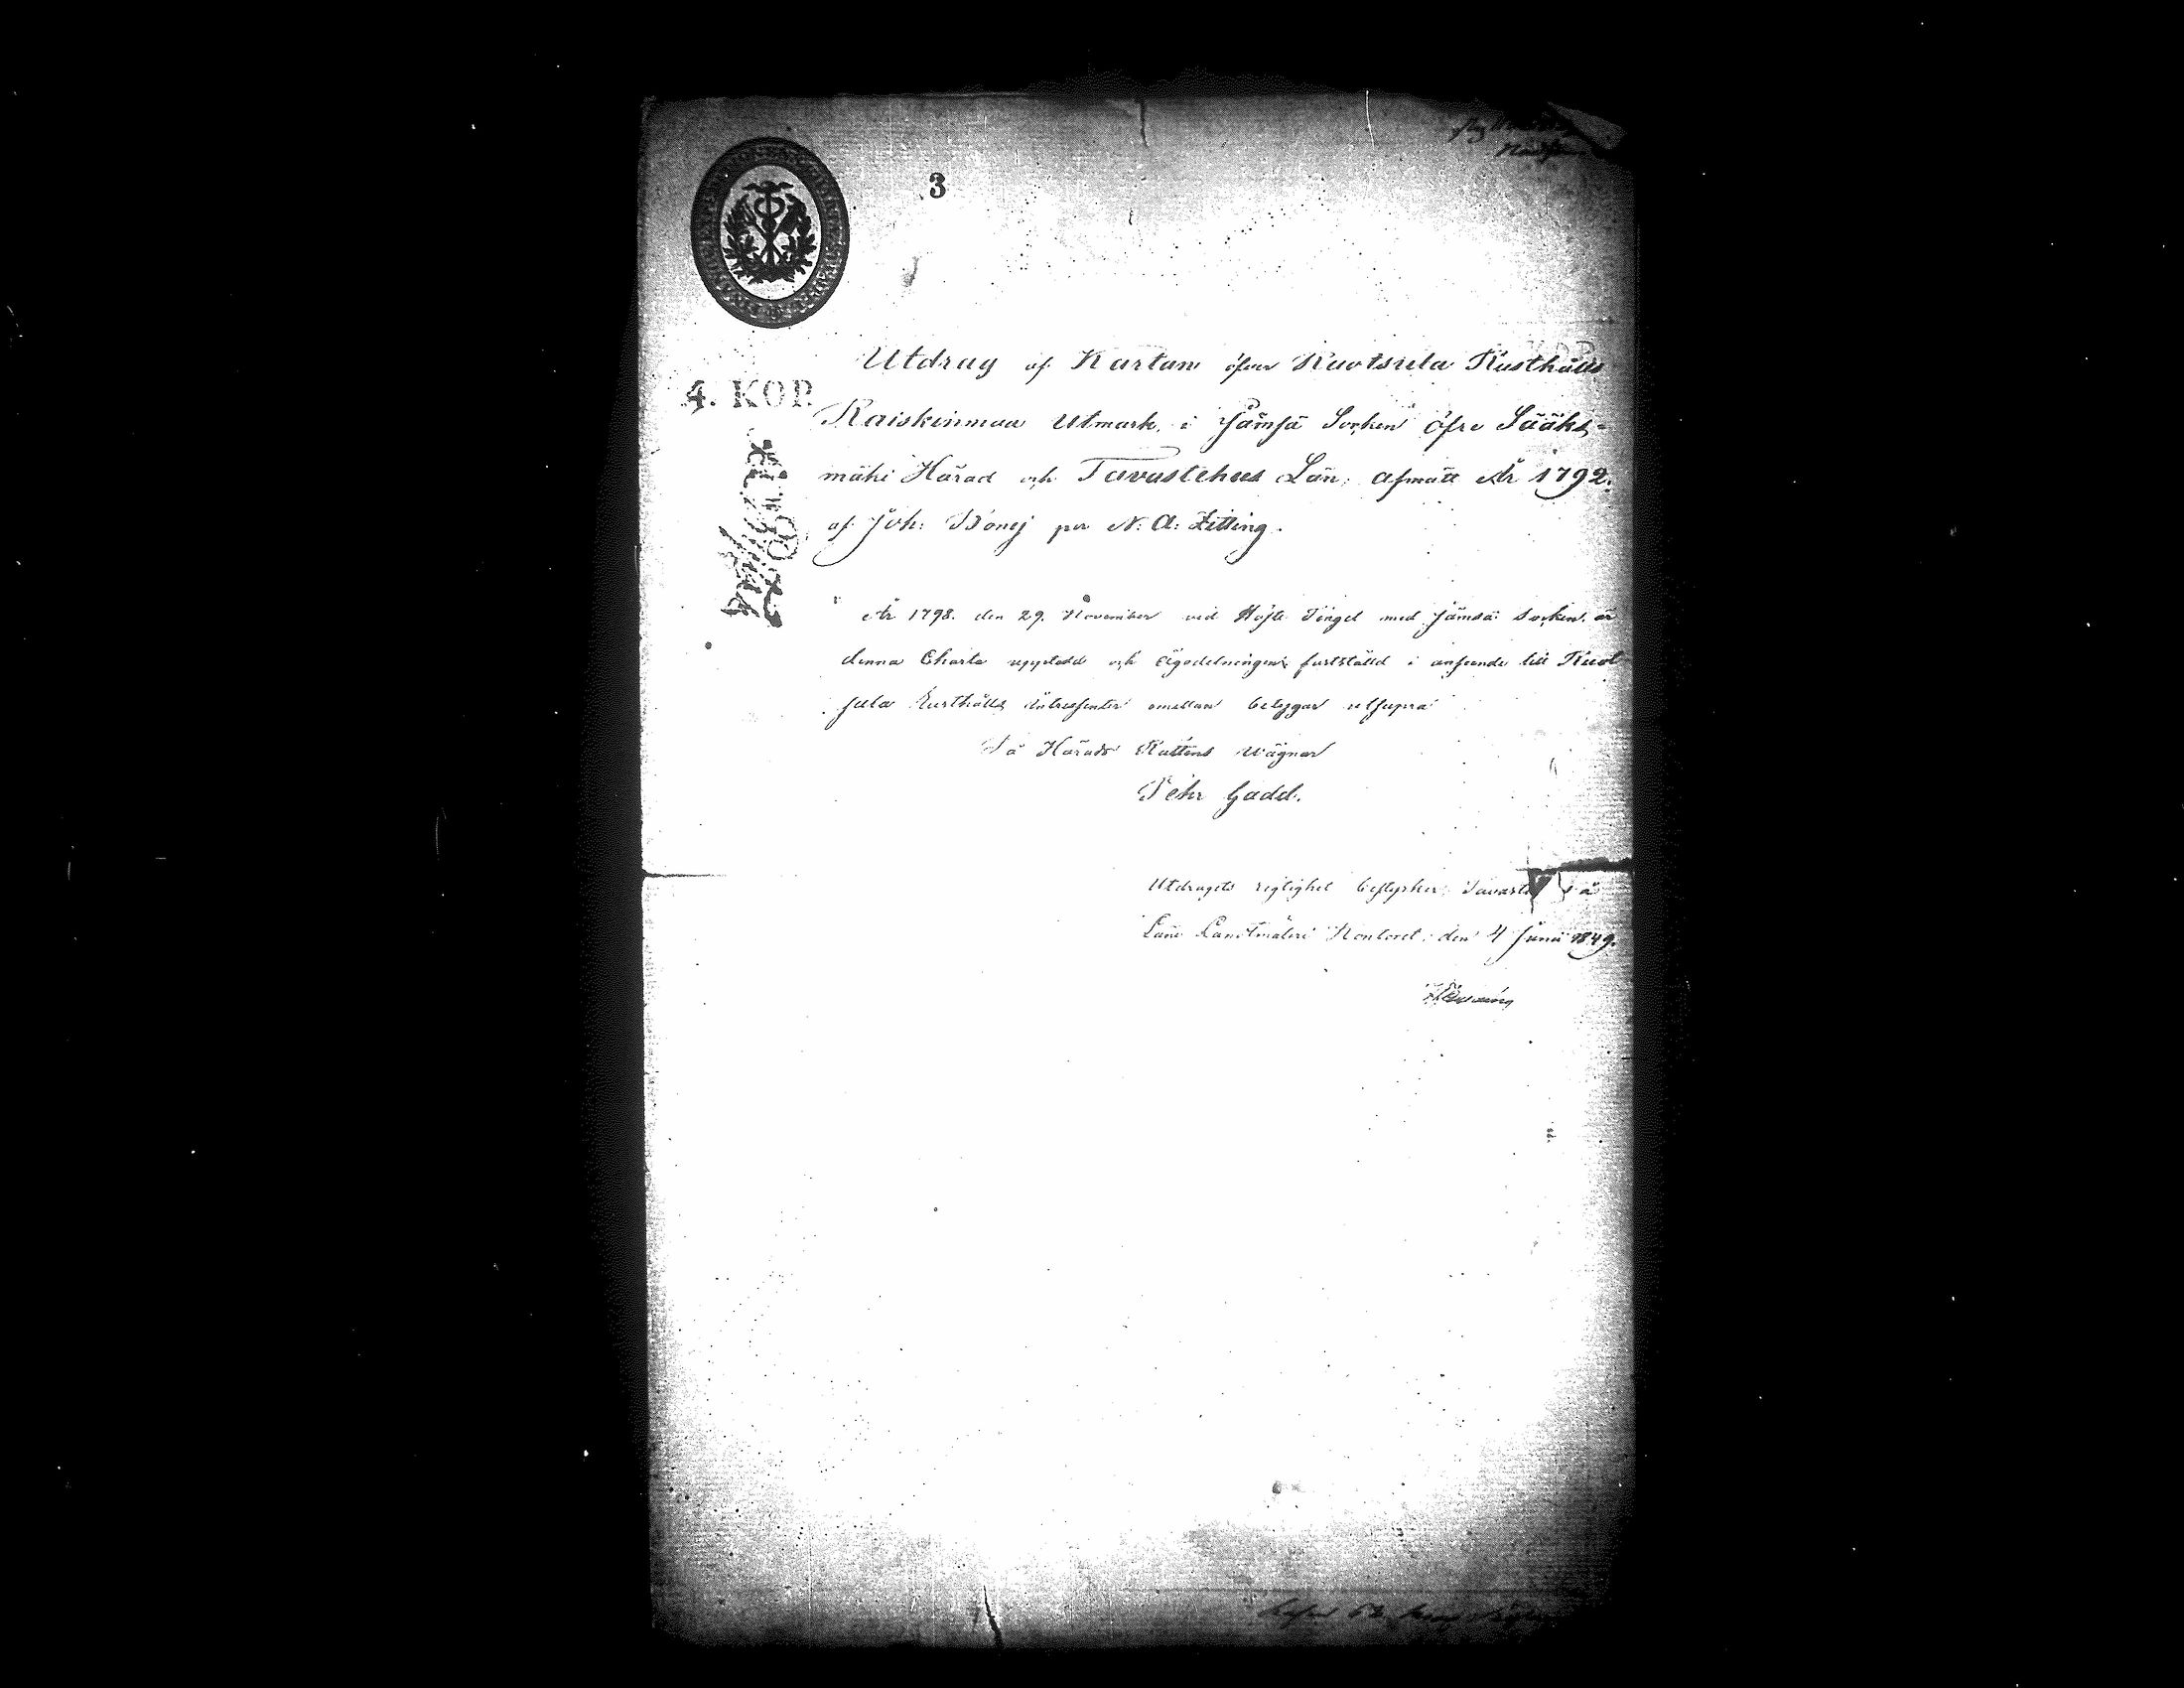 3
4. KOP.
Utdrag af Kartan öfver Ruotsula Rusthålls
Raiskinmaa Utmark, i Jämsä Socken Öfre Sääks-
mäki Härad och Tavastehus Län, afmätt År 1792.
af Joh: Bonej per N: A: Zitting.
År 1798. den 29. November vid Höste Tinget med Jämsä Socken, är
denna Charta uppvisad och Ägodelningen fastställd i anseende till Ruot-
sula Rusthålls Intressenter emellan beläggar utsupra
På Härads Rättens wägnar
Pehr Gadd.
Utdragets rigtighet bestyrker; Tavaste
Läns Landtmäteri Kontoret, den 4 Junii 1849.